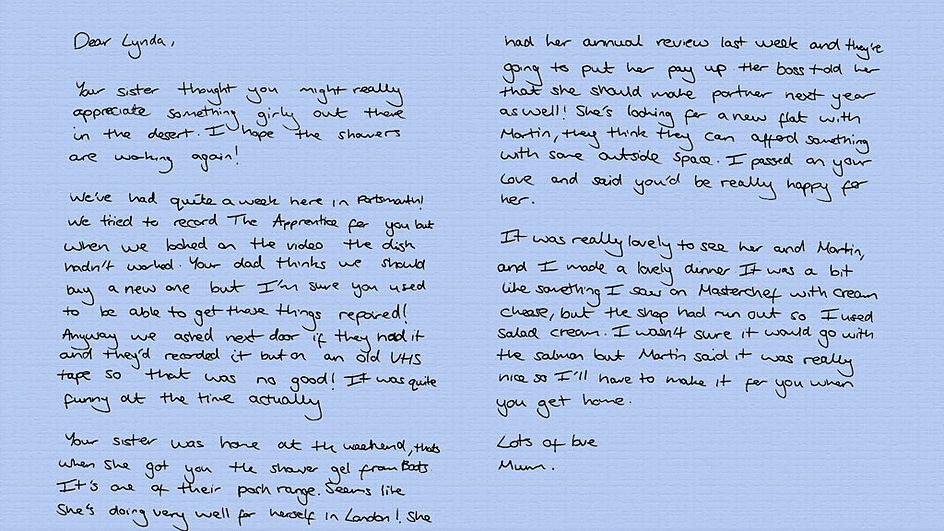 Dear Lynda,
Your sister thought you might really
appreciate something girly out there
in the desert. I hope the showers
are working again!
We've had quite a week here in Portsmouth!
We tried to record The Apprentice for you but
when we looked on the video the dish
hadn't worked. Your dad thinks we should
buy a new one but I'm sure you used
to be able to get those things repaired!
Anyway we asked next door if they had it
and they'd recorded it but on an old VHS
tape so that was no good! It was quite
funny at the time actually
Your sister was home at the weekend, thats
when she got you the shower gel from Boots.
It's one of their posh range. Seems like
She's doing very well for herself in London! She
had her annual review last week and they're
going to put her pay up Her boss told her
that she should make partner next year
as well! She's looking for a new flat with
Martin, they think they can afford something
with some outside space. I passed on your
love and said you'd be really happy for
her.
It was really lovely to see her and Martin,
and I made a lovely dinner It was a bit
like something I saw on Masterchef with cream
chease, but the shop had run out so I used
salad cream. I wasn't sure it would go with
the salmon but Martin said it was really
nice so I'll have to make it for you when
you get home.
Lots of love
Mum.